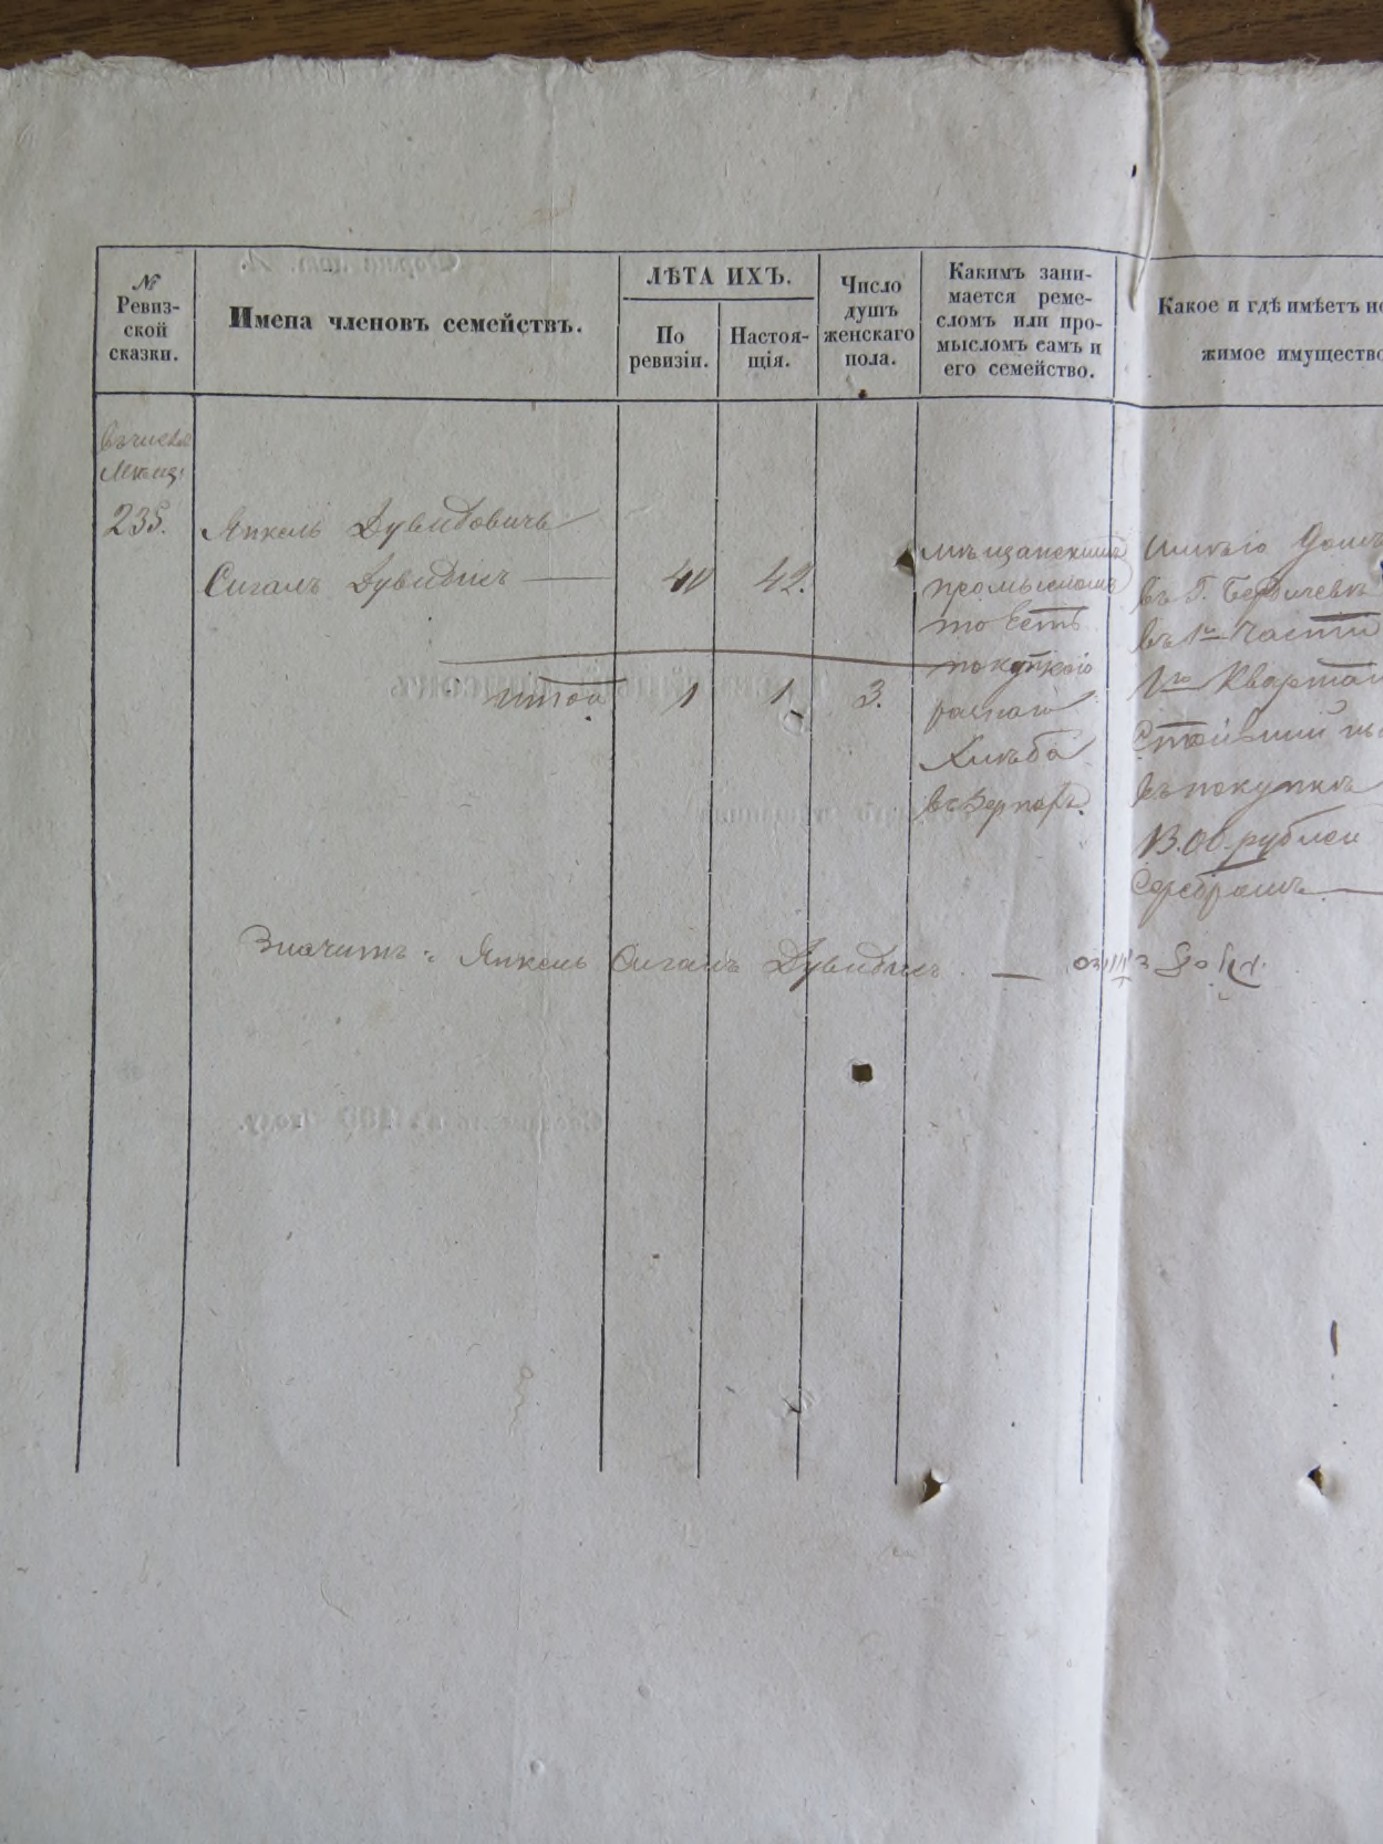 №
Ревиз-
ской
сказки.
Имена членовъ семействъ.
ЛѢТА ИХЪ.
По
ревизіи.
Настоя-
щія.
Число
душъ
женскаго
пола.
Какимъ зани-
мается реме-
сломъ или про-
мысломъ самъ и
его семейство.
Какое и гдѣ имѣетъ не
жимое имущество
въ числѣ
Мѣщ:
235.
Янкель Дувидовичъ
Сигалъ Дувидисъ
40
42.
итого
1
1
3.
мѣщанскимъ
промысломъ
то есть
покупкою
разнаго
Хлѣба
въ Зернахъ.
Имѣю Домъ
въ Г. Бердичевѣ
въ 1й Части
1го Квартал
Стоівшій
въ покупкѣ
рублей
Серебромъ
Значитъ: Янкель Сигалъ Дувидисъ. —